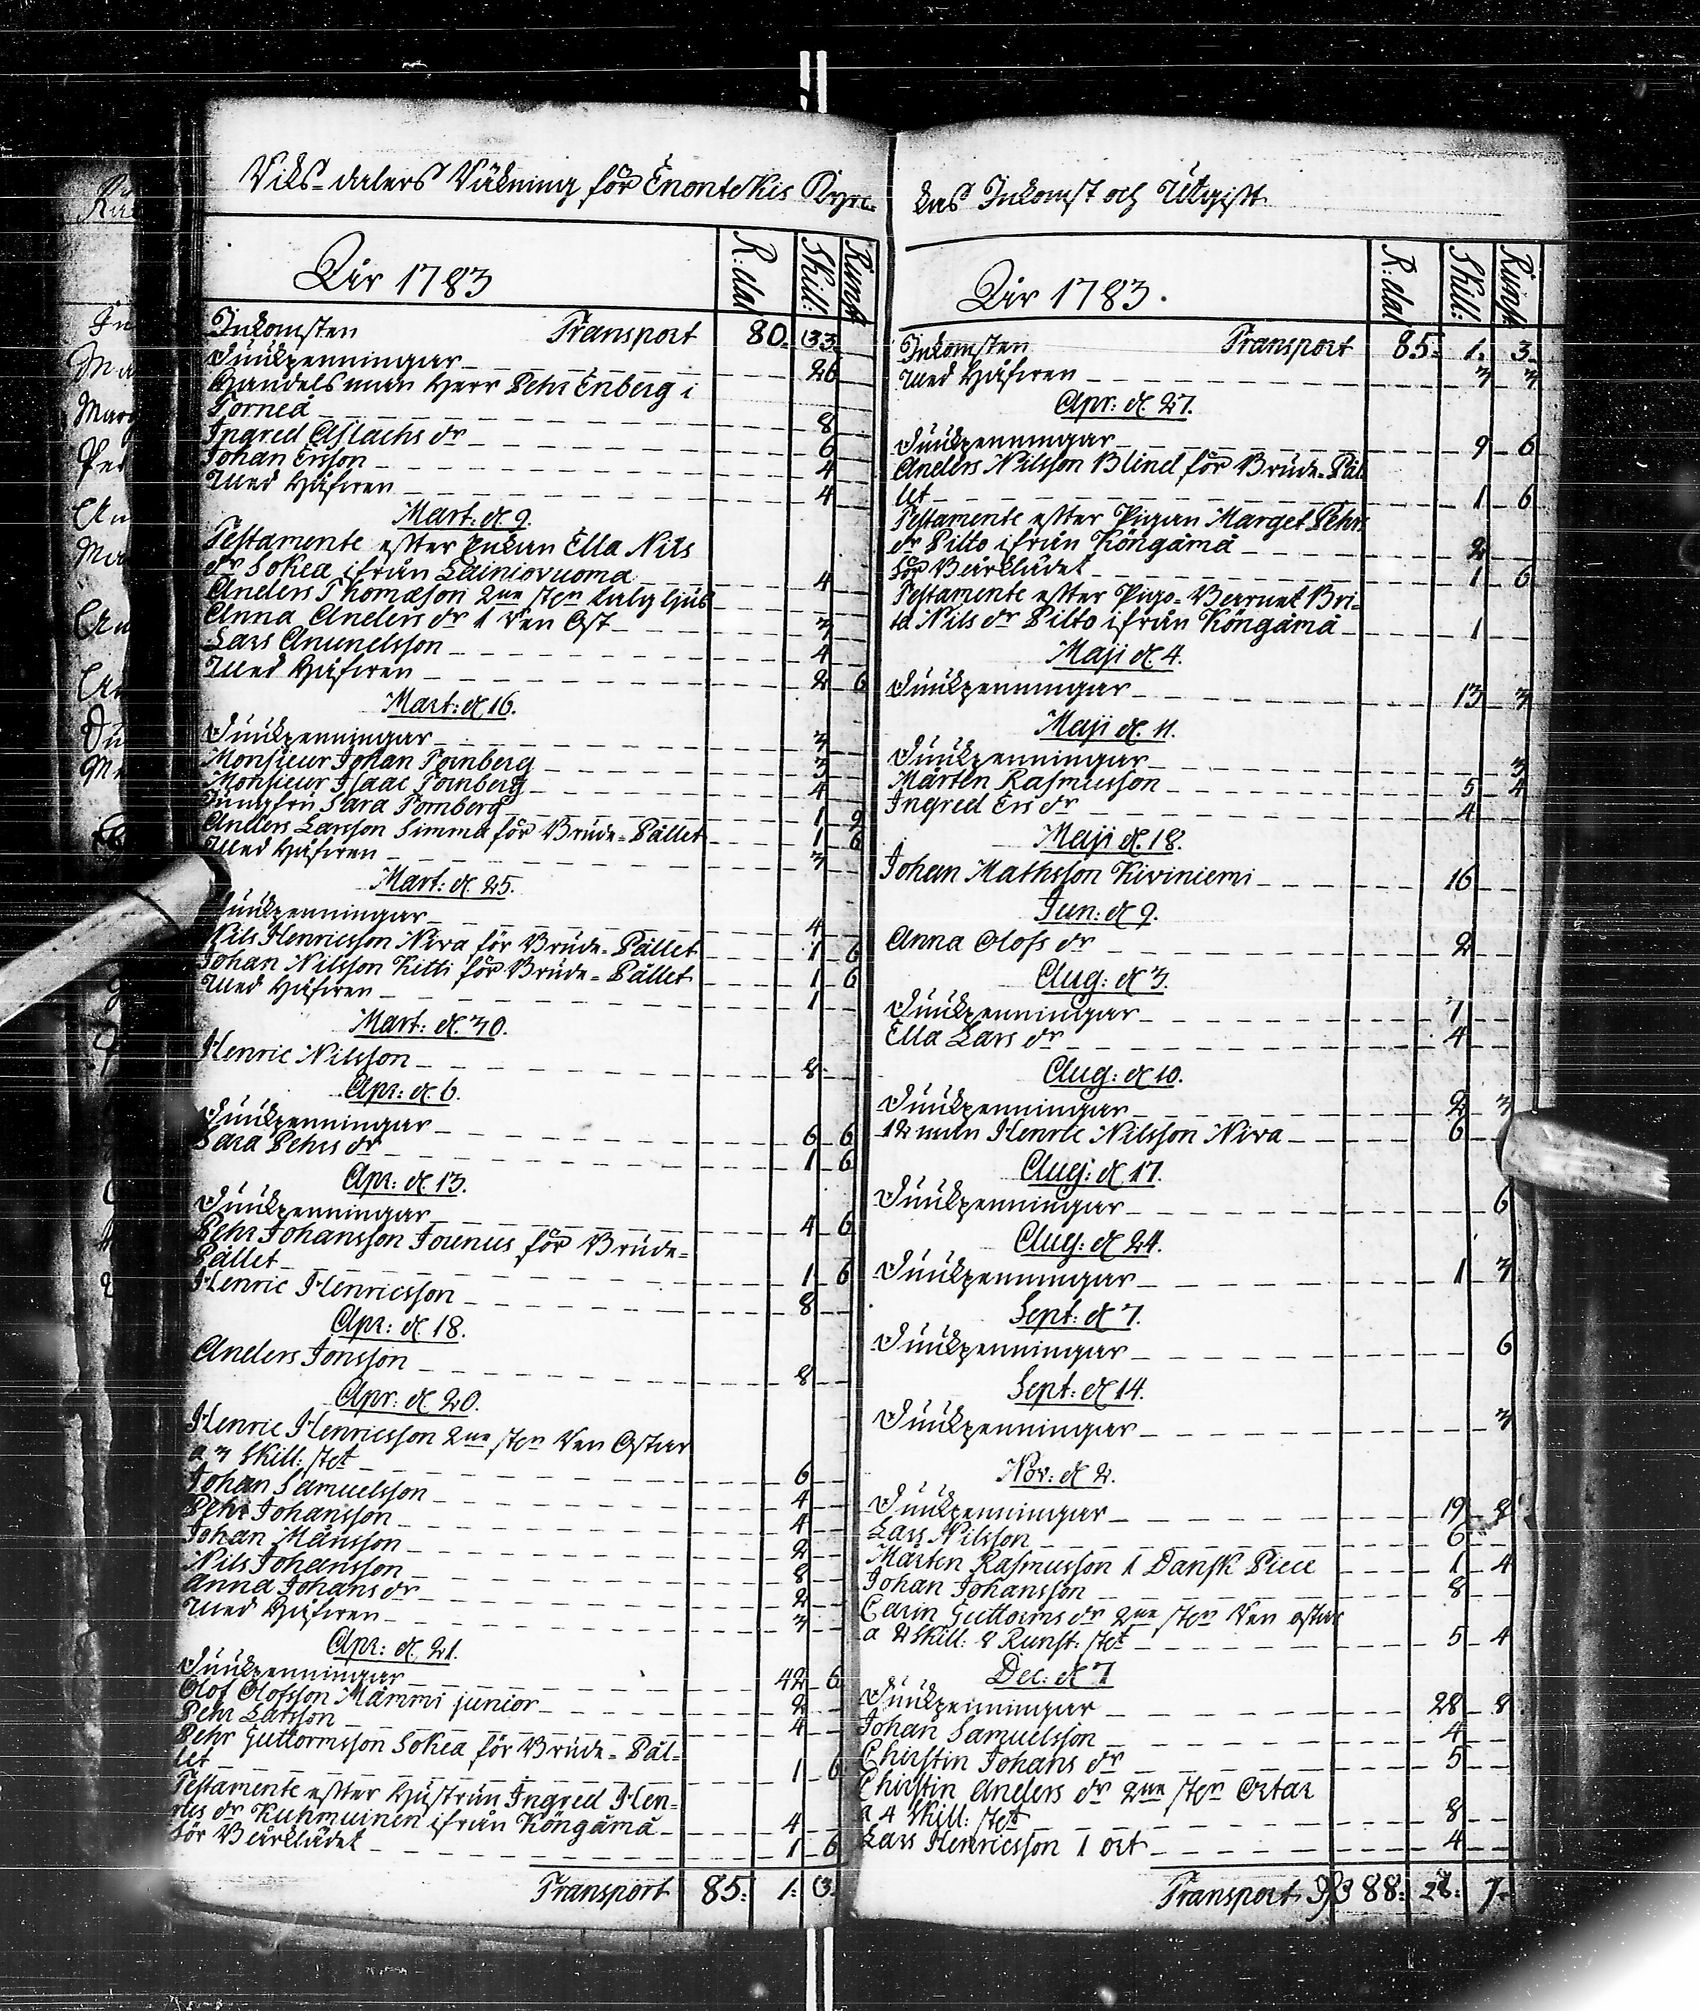 Riks-dalers Räkning för Enontekis Kyrc-
Åhr 1783 R:dal Skill: Runst
Inkomsten Transport 80. 33.
Siukpenningar 26
Handelsman Herr Pehr Enberg i
Torneå 8
Ingred Aslachs dr 6
Johan Ersson 4
Med Håfwen 4
Mart: d. 9.
Testamente efter Enkan Ella Nils
dr Sokea ifrån Lainiovuoma 4
Anders Thomæson 2ne st:n talg ljus
Anna Anders dr 1 Ren Ost 3
Lars Amundsson 4
Med Håfwen 2 6
Mart: d. 16.
Siukpenningar 3
Monsieur Johan Pomberg 3
Monsieur Isaac Pomberg 4
Jungfru Sara Pomberg 1 9
Anders Larsson Simma för Brude-Pallet 1 6
Med Håfwen 3
Mart: d. 25.
Siukpenningar 4
Nils Henricsson Niva för Brude-Pallet 1 6
Johan Nilsson Kitti för Brude-Pallet 1 6
Med Håfwen 1
Mart: d. 30.
Henric Nilsson 8
Apr: d. 6.
Siukpenningar 6 6
Sara Pehrs dr 1 6
Apr: d. 13.
Siukpenningar 4 6
Pehr Johansson Jounus för Brude-
Pallet 1 6
Henric Henricsson 8
Apr: d. 18.
Anders Jonsson 8
Apr: d. 20.
Henric Henricsson 2ne st:n Ren Ostar
a 3 Skill: st:t 6
Johan Samuelsson 4
Pehr Johansson 4
Johan Månsson 2
Nils Johansson 8
Anna Johans dr 2
Med Håfwen 3
Apr: d. 21.
Siukpenningar 42 6
Olof Olofsson Mämmi junior 2
Pehr Larsson 4
Pehr Guttormsson Sokea för Brude-Pal-
let 1 6
Testamente efter Hustrun Ingred Hen-
rics dr Kuhmuinen ifrån Köngämä 4
för Bårklädet 1 6
Transport 85. 1. 3.
kas Inkomst och Utgift
Åhr 1783. R:dal Skill: Runst
Inkomsten Transport 85. 1. 3.
Med Håfwen 3 3
Apr: d. 27.
Siukpenningar 9 6
Anders Nilsson Blind för Brude-Pal
let 1 6
Testamente efter Pigan Marget Pehrs
dr Pilto ifrån Köngämä 2
för Bårklädet 1 6
Testamente efter Pigo-Barnet Bri-
ta Nils dr Pilto ifrån Köngämä 1
Maji d. 4.
Siukpenningar 13 3
Maji d. 11.
Siukpenningar 3
Mårten Rasmusson 5 4
Ingred Ers dr 4
Maji d. 18.
Johan Mathsson Kiviniemi 16
Jun: d. 9.
Anna Olofs dr 2
Aug: d. 3.
Siukpenningar 7
Ella Lars dr 4
Aug: d. 10.
Siukpenningar 2 3
12 man Henric Nilsson Niva 6
Aug: d. 17.
Siukpenningar 6
Aug: d. 24.
Siukpenningar 1 3
Sept: d. 7.
Siukpenningar 6
Sept: d. 14.
Siukpenningar 3
Nov: d. 2.
Siukpenningar 19 8
Lars Nilsson 6
Mårten Rasmusson 1 Dansk Piece 1 4
Johan Johansson 8
Carin Guttorms dr 2ne st:n Ren ostar
a 2 Skill: 8 Runst: st:t 5 4
Dec: d. 7
Siukpenningar 28 8
Johan Samuelsson 4
Christin Johans dr 5
Christin Anders dr 2ne st:n Ortar
a 4 Skill: st:t 8
Lars Henricsson 1 ort 4
Transport 88. 28. 7.